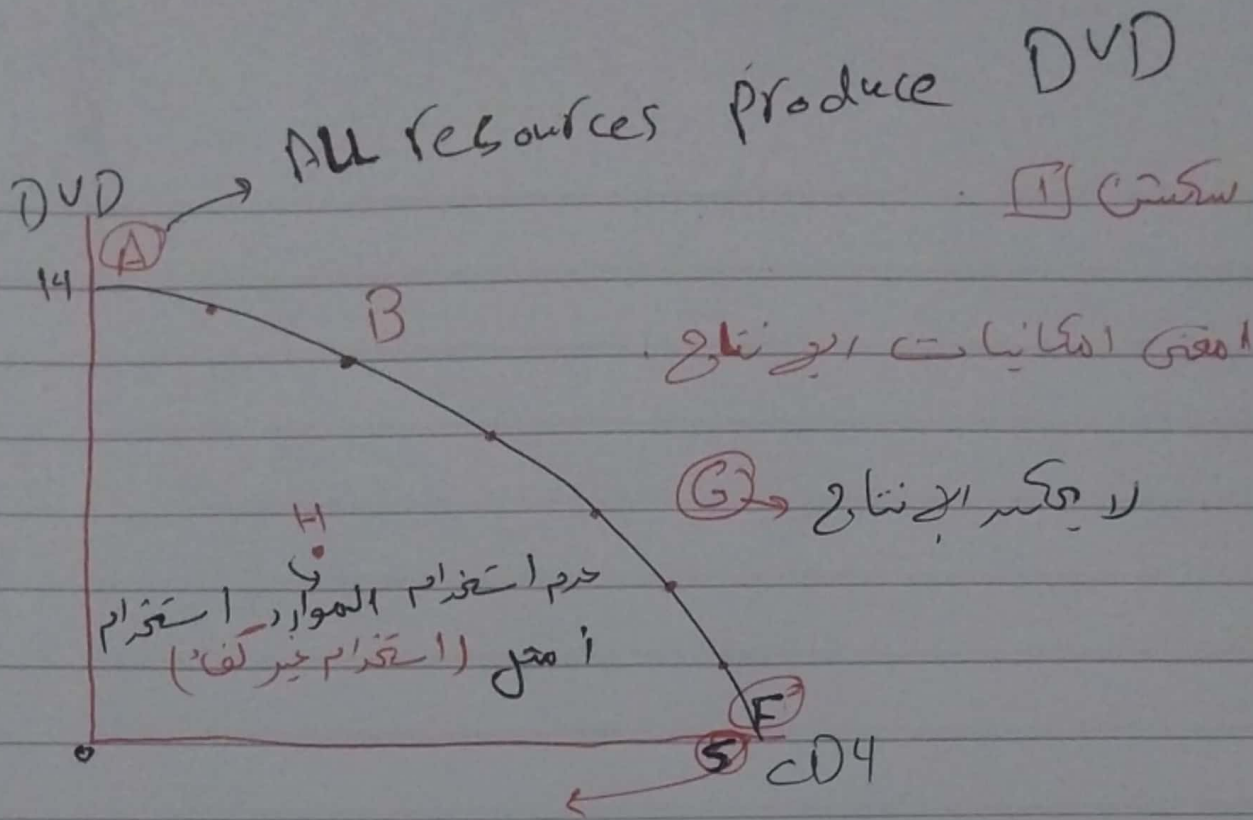 All resources produce DVD
سكشن 1
DVD
A
14
B
منحنى امكانيات الإنتاج
G
لا يمكن الإنتاج
H
عدم استخدام الموارد استخدام
أمثل (استخدام غير كفء)
F
5
CD4
0